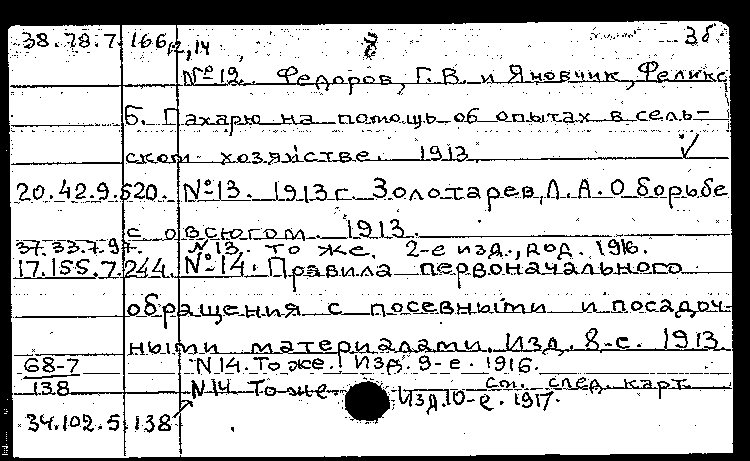 38.78.7.166 12,14 8 3б.
№12. Федоров, Г.В. и Яновчик, Феликс
Б. Пахарю на помощь об опытах в сель-
ском хозяйстве. 1913.
20.42.9.620. №13. 1913 г. Золотарев, Л.А. О борьбе
с овсюгом. 1913.
37.33.7.97. N13. То же. 2-е изд., доп. 1916.
17.155.7.244. №14. Правила первоначального
обращения с посевными и посадоч-
ными материалами. Изд. 8-е. 1913.
68-7 N14. То же. Изд. 9-е. 1916.
138 N14. То же. см. след. карт
Изд. 10-е. 1917.
34.102.5.138